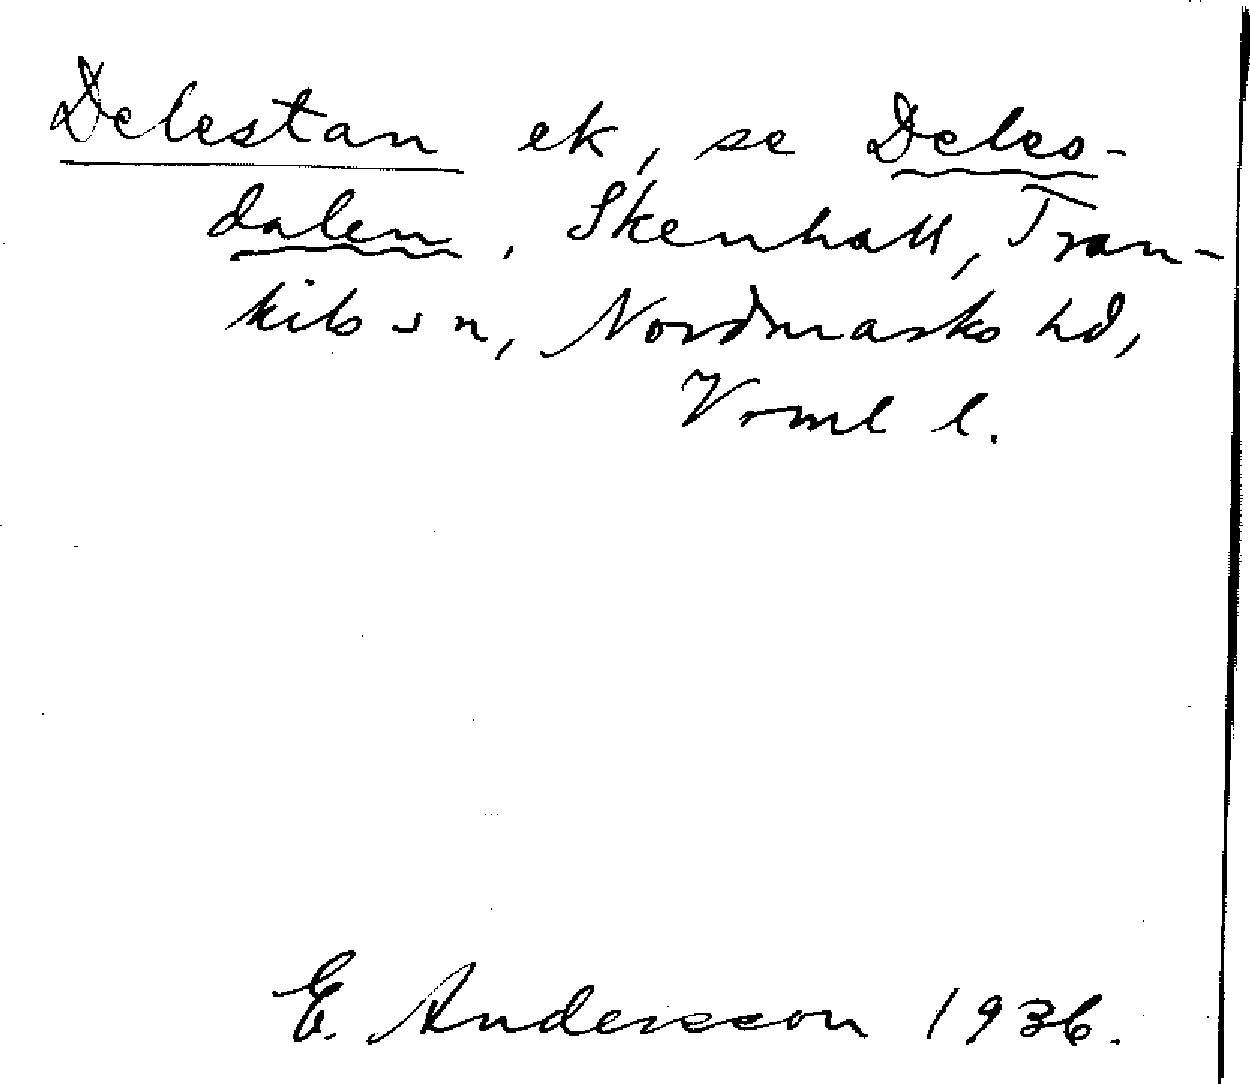 Delestan ek, se Deles-
dalen, Skenhall, Tran-
kils sn, Nordmarks hd,
Vrml l.
E. Andersson 1936.